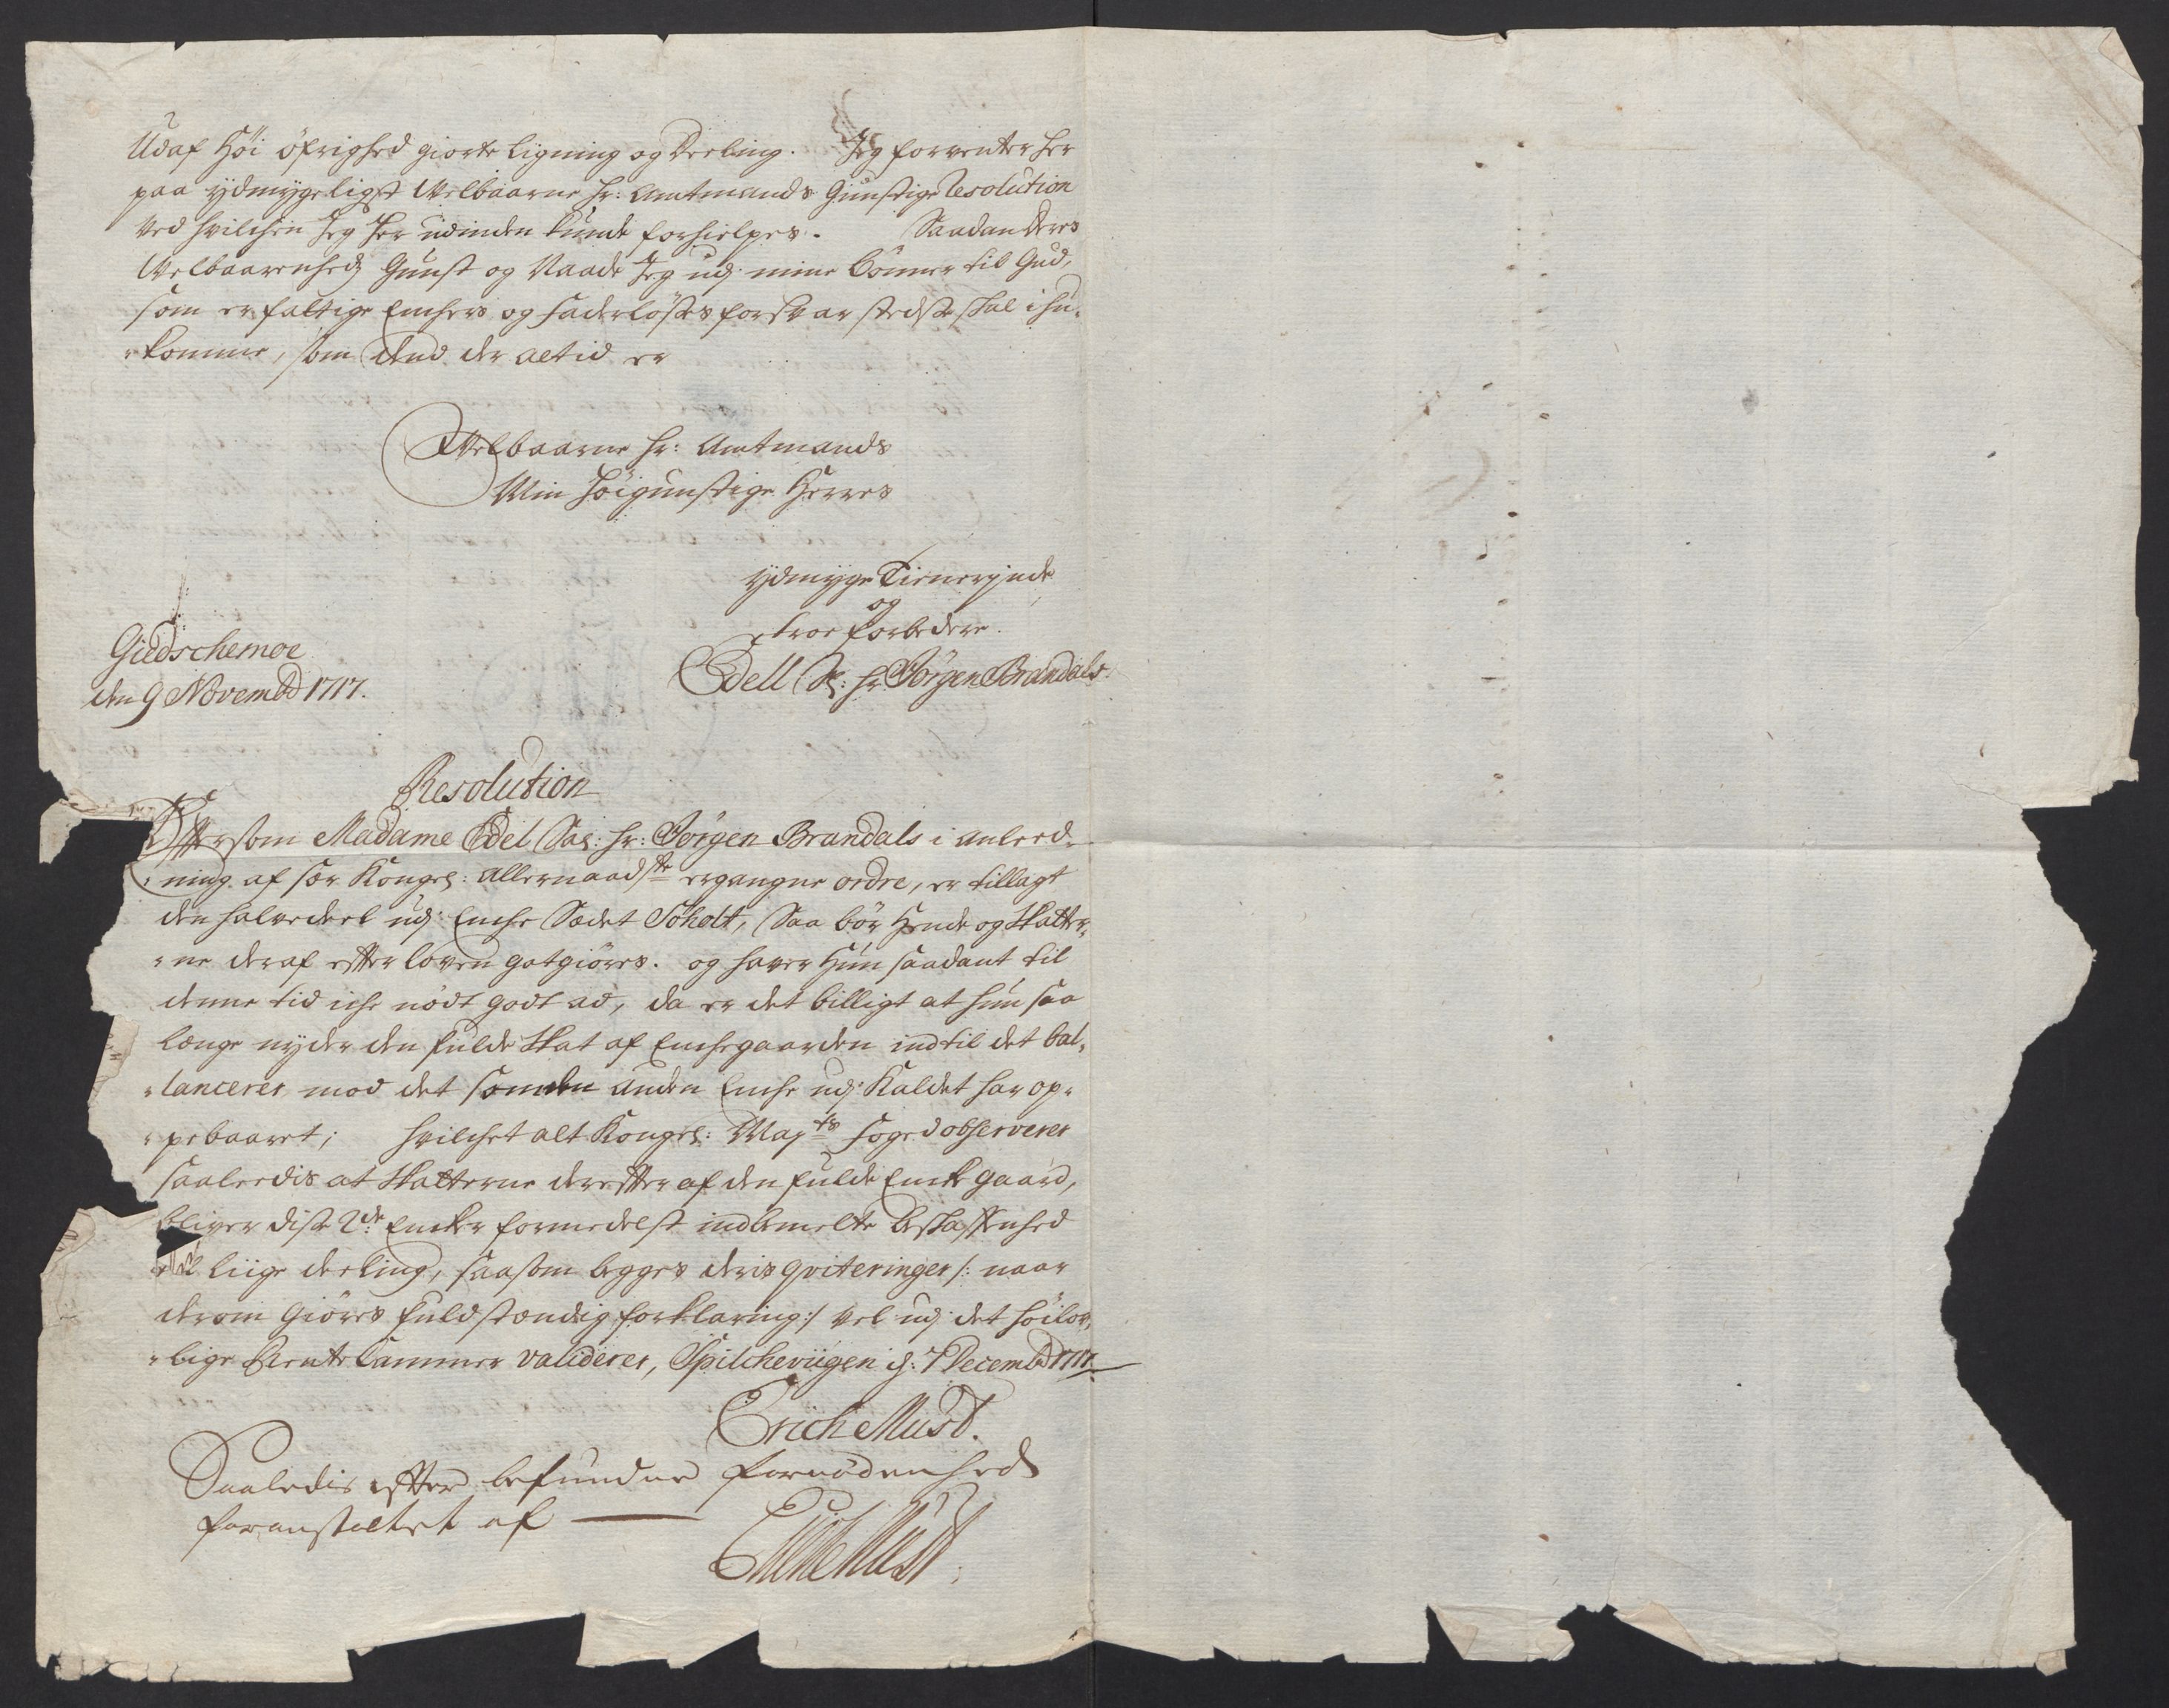 Udaf Höi öfrighed giorte ligning og Deeling. Jeg forventer her
paa ydmygeligst Welbaarne Hr: Amtmands Gunstige Resolution
ved hvilchen Jeg her udinden kunde forhielpes. Saadan Deres
Welbaarenheds Gunst og Naade Jeg udj mine bönner til Gud,
som er fattige Encher og faderlöses forsvar stedse skal ihu-
-komme, som dend der altid er
Welbaarne Hr: Amtmands
Min Höigunstige Herres
ydmyge Tienerinde
og
troe forbedere.
Edell Sl: hr: Jörgen Brandals
Giedschemoe
den 9 Novembr 1717.
Resolution
Effttersom Madame Edel Sal: hr: Jörgen Brandals i anleed-
-ning af før Kongel: allernaadste ergangne ordre, er tillagt
den halvedeel udj Enche Sædet Soholt, Saa bör Hende og Skatter-
-ne deraf effter loven gotgiöres. og haver Hun saadant til
denne tid iche nödt godt ad, da er det billigt at hun saa
længe nyder den fulde Skat af Enchegaarden indtil det bal-
-lancerer mod det som den anden Enche udj Kaldet har op-
-pebaaret; hvilchet alt Kongel: Mayts foged observerer
saaleedis at Skatterne dereffter af den fulde Enke gaard,
bliver disse 2de Enker formedelst indbemelte beskaffenhed
till liige deeling, saasom begges deris qviteringer /: naar
derom giöres fuldstændig forklaring :/ vel udj det höilov-
-lige Rente Cammer validerer, Spilchevigen d: 7 Decembr 1717
Erich Must.
Saaledis effter befundne fornödenhed
foranstaltet af —
Erich Must